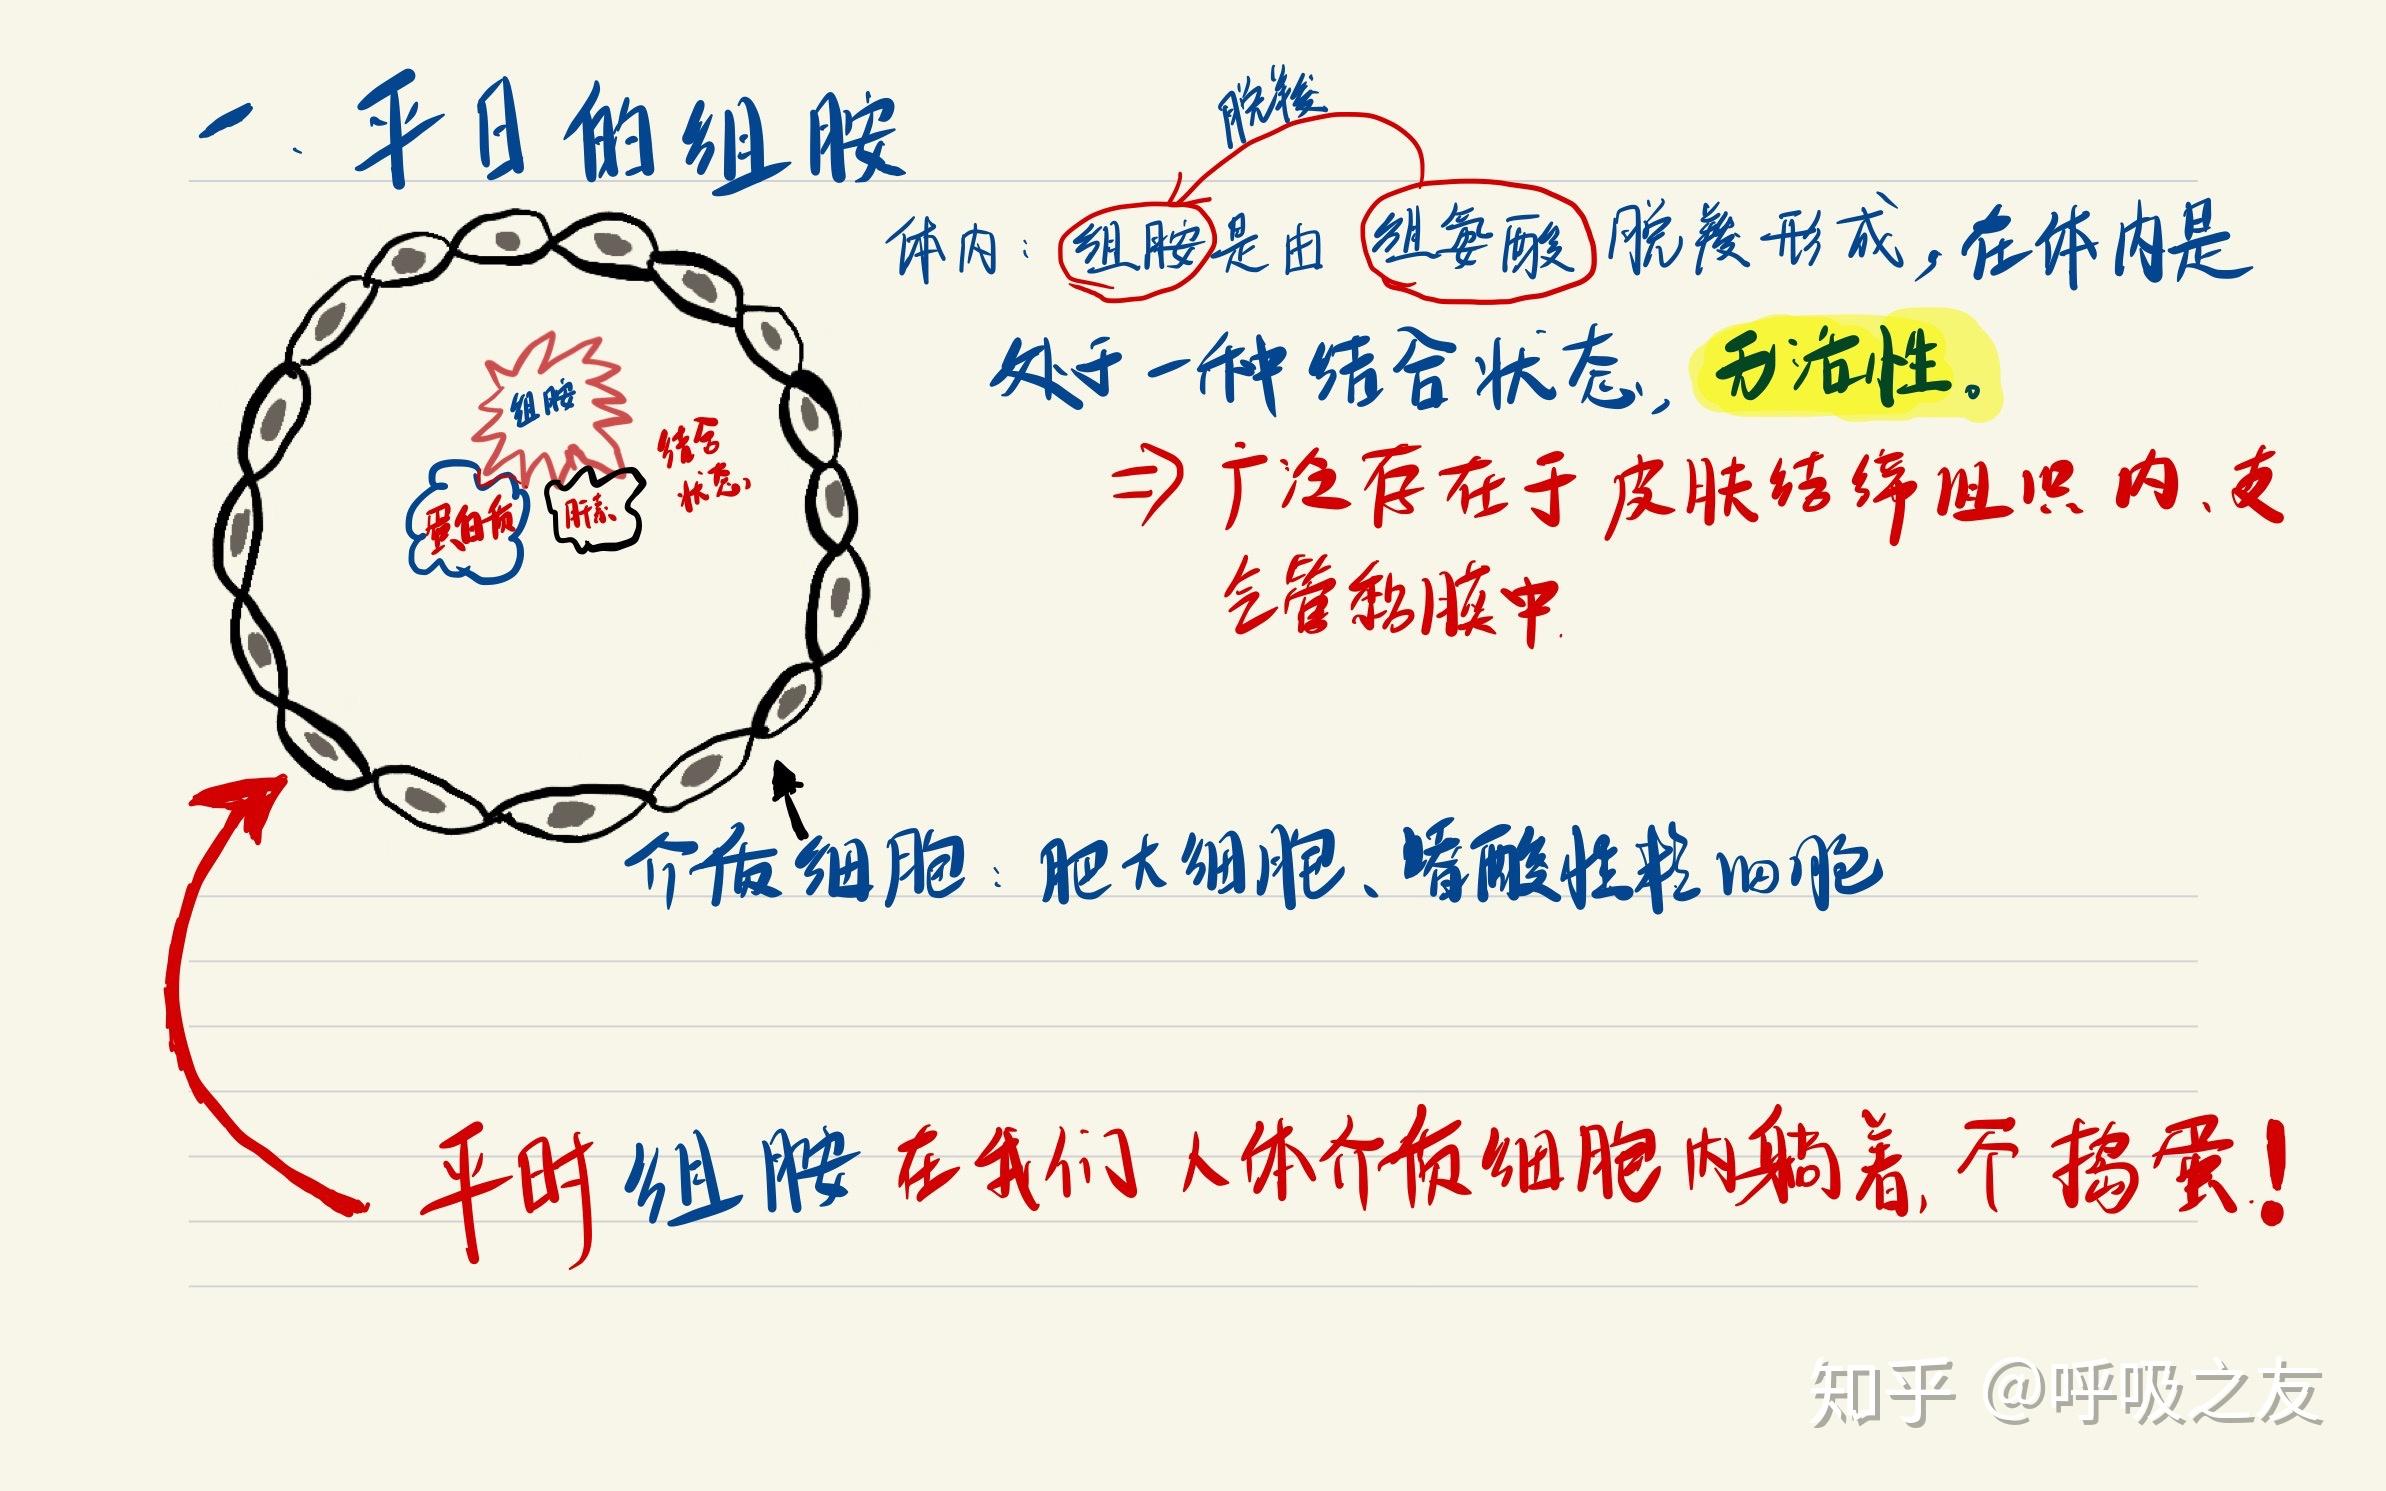 一、平日的组胺
脱羧
体内：组胺是由组氨酸脱羧形成，在体内是
处于一种结合状态，无活性。
⇒广泛存在于皮肤结缔组织内、支
气管黏膜中.
组胺
结合
状态
蛋白质
肝素
介质细胞：肥大细胞、嗜酸性粒细胞
平时组胺在我们人体介质细胞内躺着,不捣蛋！
知乎 @呼吸之友